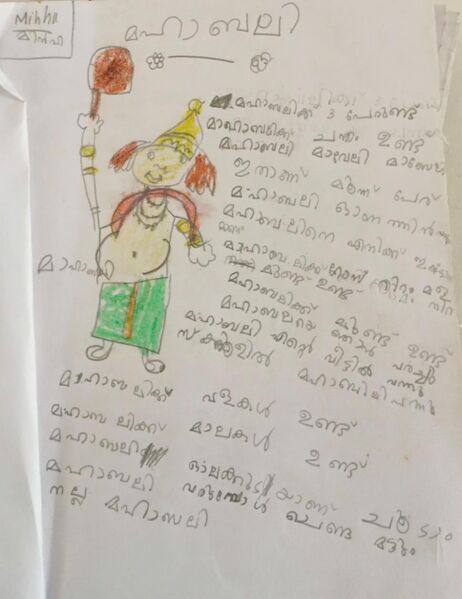 Minha
മിൻഹ
മഹാബലി
മഹാബലിക്ക് 3 പേരുണ്ട്
മാഹാബലിക്ക് ചന്തം ഉണ്ട്
മഹാബലി മാവേലി
ഇതാണ് മൂന്ന് പേര്
മഹാബലി ഓണത്തിൻ
മഹാബലിനെ എനിക്ക്
മാഹാബലിക്ക്
മുണ്ട് ഉണ്ട്
മഹാബലിക്ക് മുണ്ട് ഉണ്ട്
മഹാബലിയെ ഞാൻ
മഹാബലി എന്റെ വീട്ടിൽ വന്നു
സ്കൂളിൽ മഹാബിലി വന്നു
മാഹാബ
മാഹാബലിക്ക് വളകൾ ഉണ്ട്
മഹാബലിക്ക് മാലകൾ ഉണ്ട്
മഹാബലി ഓലക്കുടയാണ് ചൂടാ
മഹാബലി വരുമ്പോൾ ചെണ്ട മുട്ടും
നല്ല മഹാബലി